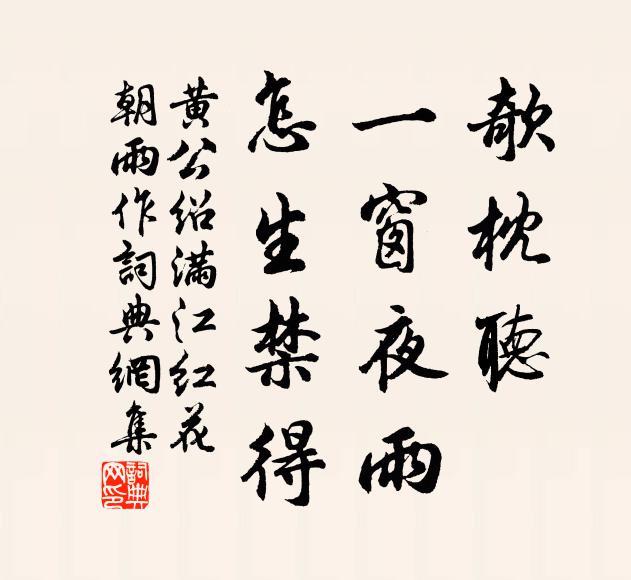 欹枕聽
一窗夜雨
怎生禁得
黃公紹滿江紅花
朝雨作詞典網集
詞典
网印